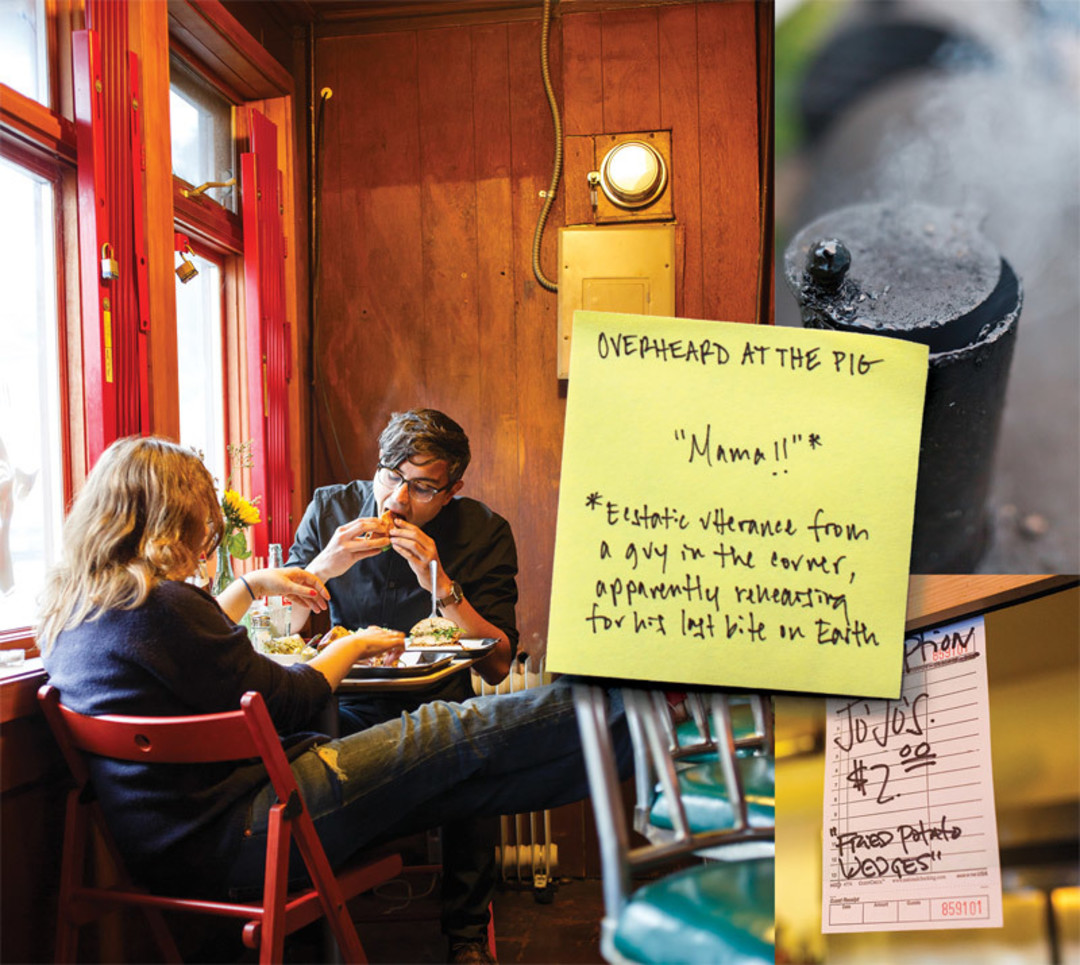 OVERHEARD AT THE PIG
"Mama!!"*
*Ecstatic utterance from
a guy in the corner,
apparently rehearsing
for his last bite on Earth
ption
859101
Jo Jo's.
$2.00
"FRIED POTATO
WEDGES"
Guest Receipt
Date Amount Guests
859101